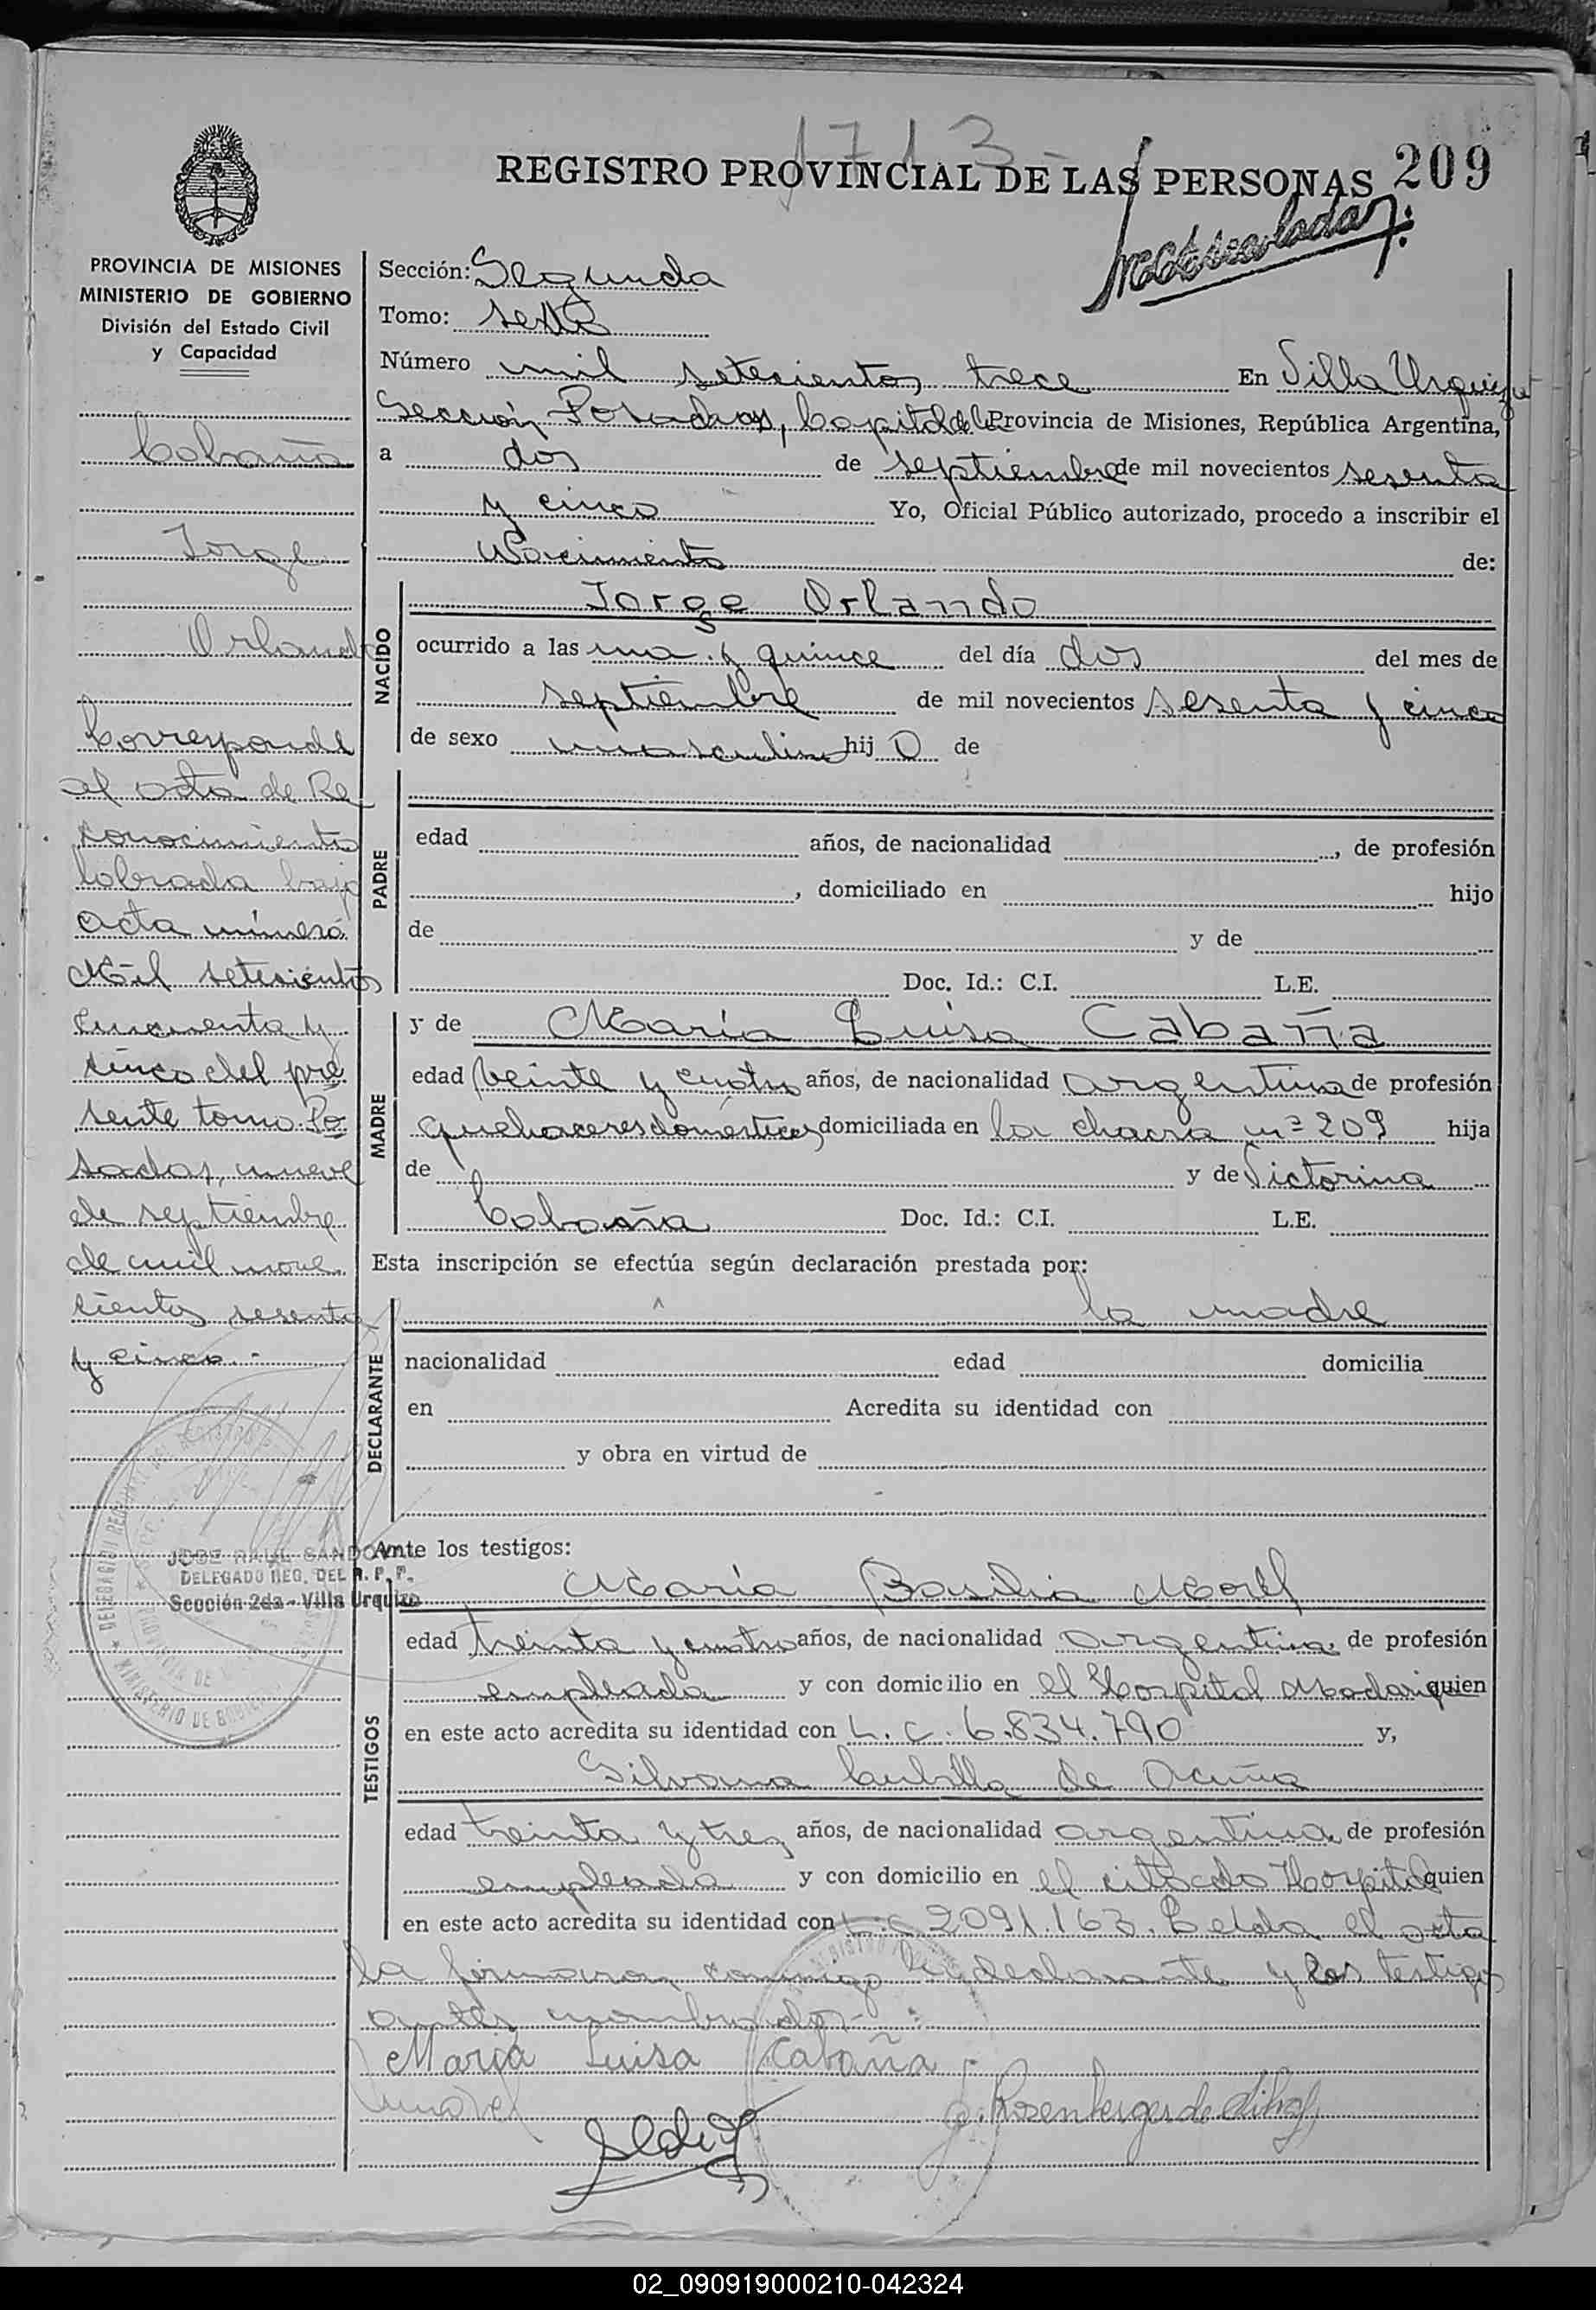 1713-
REGISTRO PROVINCIAL DE LAS PERSONAS 209
PROVINCIA DE MISIONES
MINISTERIO DE GOBIERNO
División del Estado Civil
y Capacidad
Cabaña
Jorge
Orlando
Corresponde
al acta de Re
conocimiento
labrada bajo
acta número
Mil setecientos
cincuenta y
cinco del pre
sente tomo. Po
sadas, nueve
de septiembre
de mil nove
cientos sesenta
y cinco.-
JOSE RAUL SANDOVAL
DELEGADO REG. DEL R. P. P.
Sección 2da - Villa Urquiza
MINISTERIO DE GOBIERNO
Sección: Segunda
Tomo: sexto
Número mil setecientos trece En Villa Urquiza
Sección Posadas, Capital de la Provincia de Misiones, República Argentina,
a dos de septiembre de mil novecientos sesenta
y cinco Yo, Oficial Público autorizado, procedo a inscribir el
Nacimiento de:
NACIDO
Jorge Orlando
ocurrido a las una y quince del día dos del mes de
septiembre de mil novecientos sesenta y cinco
de sexo masculino hij o de
PADRE
edad años, de nacionalidad , de profesión
, domiciliado en hijo
de y de
Doc. Id.: C.I. L.E.
MADRE
y de María Luisa Cabaña
edad veinte y cuatro años, de nacionalidad argentina de profesión
quehaceres domésticos domiciliada en la chacra nº 209 hija
de y de Victorina
Cabaña Doc. Id.: C.I. L.E.
Esta inscripción se efectúa según declaración prestada por:
DECLARANTE
la madre
nacionalidad edad domicilia
en Acredita su identidad con
y obra en virtud de
Ante los testigos:
TESTIGOS
María Basilia Morel
edad treinta y cuatro años, de nacionalidad argentina de profesión
empleada y con domicilio en el Hospital Madariaga quien
en este acto acredita su identidad con L.C. 6.834.790 y,
Silvana Cubilla de Acuña
edad treinta y tres años, de nacionalidad argentina de profesión
empleada y con domicilio en el citado Hospital quien
en este acto acredita su identidad con L.C. 2091.163. Leída el acta
la firmaron conmigo la declarante y los testigos
antes nombrados-
Maria Luisa Cabaña
Rosenberger de
02_090919000210-042324